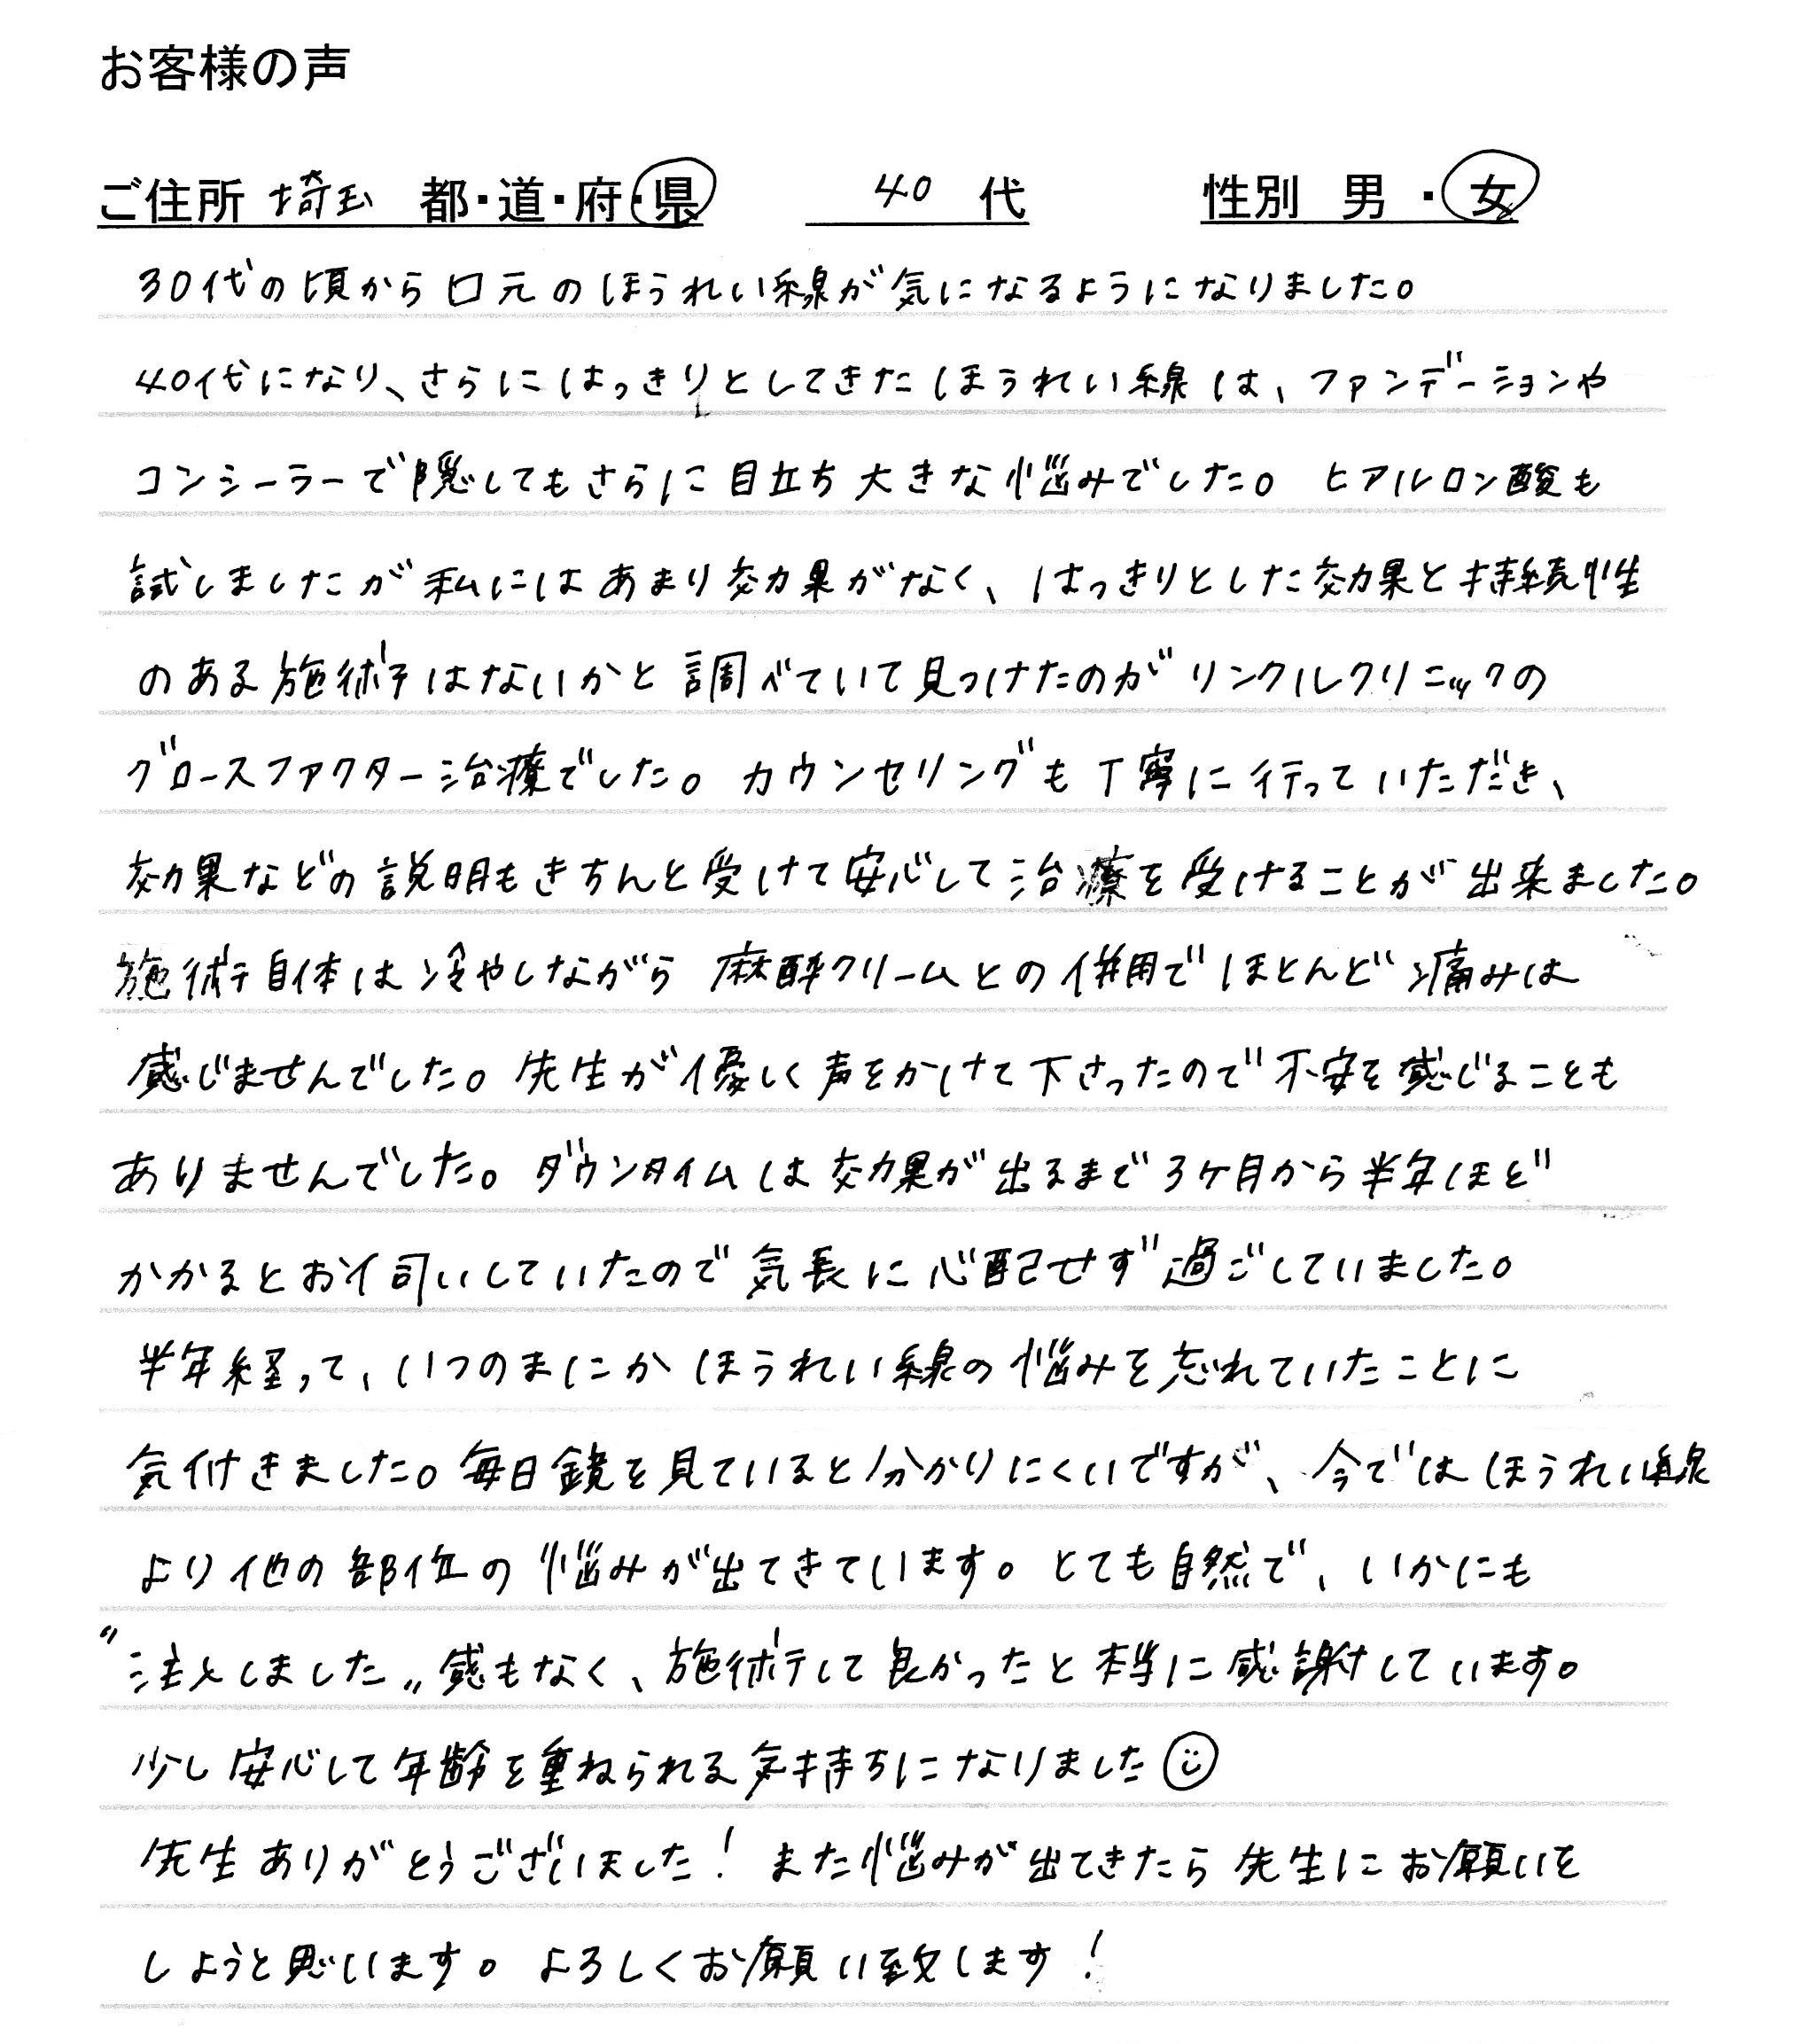 お客様の声
ご住所 埼玉 都・道・府・県 40 代 性別 男・女
30代の頃から口元のほうれい線が気になるようになりました。
40代になり、さらにはっきりとしてきたほうれい線は、ファンデーションや
コンシーラーで隠してもさらに目立ち大きな悩みでした。ヒアルロン酸も
試しましたが私にはあまり効果がなく、はっきりとした効果と持続性
のある施術はないかと調べていて見つけたのがリンクルクリニックの
グロースファクター治療でした。カウンセリングも丁寧に行っていただき、
効果などの説明もきちんと受けて安心して治療を受けることが出来ました。
施術自体は冷やしながら麻酔クリームとの併用でほとんど痛みは
感じませんでした。先生が優しく声をかけて下さったので不安を感じることも
ありませんでした。ダウンタイムは効果が出るまで3ケ月から半年ほど
かかるとお伺いしていたので気長に心配せず過ごしていました。
半年経って、いつのまにかほうれい線の悩みを忘れていたことに
気付きました。毎日鏡を見ていると分かりにくいですが、今ではほうれい線
より他の部位の悩みが出てきています。とても自然で、いかにも
"注入しました„感もなく、施術して良かったと本当に感謝しています。
少し安心して年齢を重ねられる気持ちになりました☺
先生ありがとうございました!また悩みが出てきたら先生にお願いを
しようと思います。よろしくお願い致します!